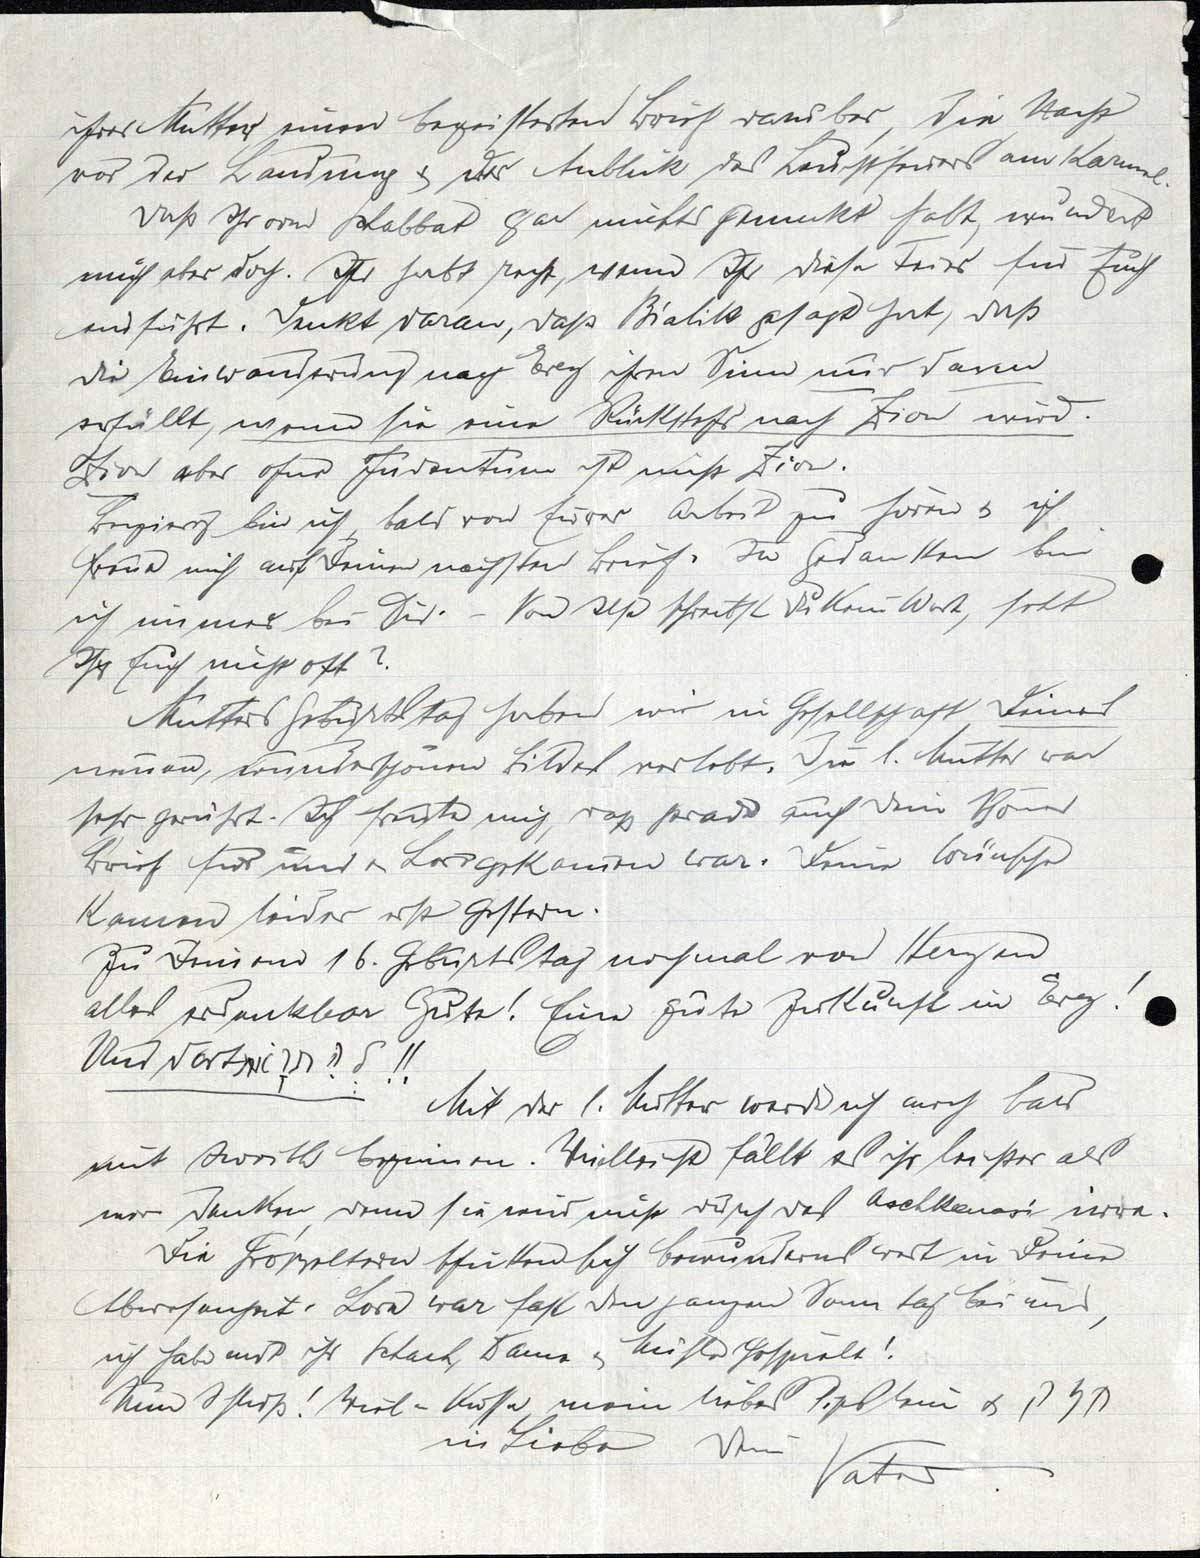 ihrer Mutter einen begeisterten Brief darüber, die Nacht
vor der Landung & der Anblick des Leuchtfeuers am Karmel.
Daß Ihr vom Schabbat gar nichts gemerkt habt, wundert
mich aber doch. Ihr habt recht, wenn Ihr diese Feier für Euch
einführt. Denkt daran, daß Bialik gesagt hat, daß
die Einwanderung nach Erez ihren Sinn nur dann
erfüllt, wenn sie eine Rückkehr nach Zion wird.
Zion aber ohne Judentum ist nicht Zion.
Begierig bin ich, bald von Eurer Arbeit zu hören & ich
freue mich auf Deinen nächsten Brief. In Gedanken bin
ich immer bei Dir. – Von Ilse schreibst Du kein Wort, seht
Ihr Euch nicht oft?
Mutters Geburtstag haben wir in Gesellschaft Deines
neuen, wunderschönen Bildes verlebt. Die l. Mutter war
sehr gerührt. Ich freute mich, daß gerade auch Dein schöner
Brief für uns & Lore gekommen war. Deine Wünsche
kamen leider erst gestern.
Zu Deinem 16. Geburtstag nochmal von Herzen
alles erdenkbar Gute! Eine gute Zukunft in Erez!
Und dort !!
Mit der l. Mutter werde ich auch bald
mit Iwrith beginnen. Vielleicht fällt es ihr leichter als
wir denken, denn sie wird nicht durch das Aschkenasi irre.
Die Großeltern schicken sich bewundernswert in Deine
Abwesenheit. Lore war fast den ganzen Sonntag bei uns,
ich habe mit ihr Schach, Dame & Mühle gespielt!
Nun Schluß! Viel Küsse, mein liebes &
in Liebe Dein
Vater